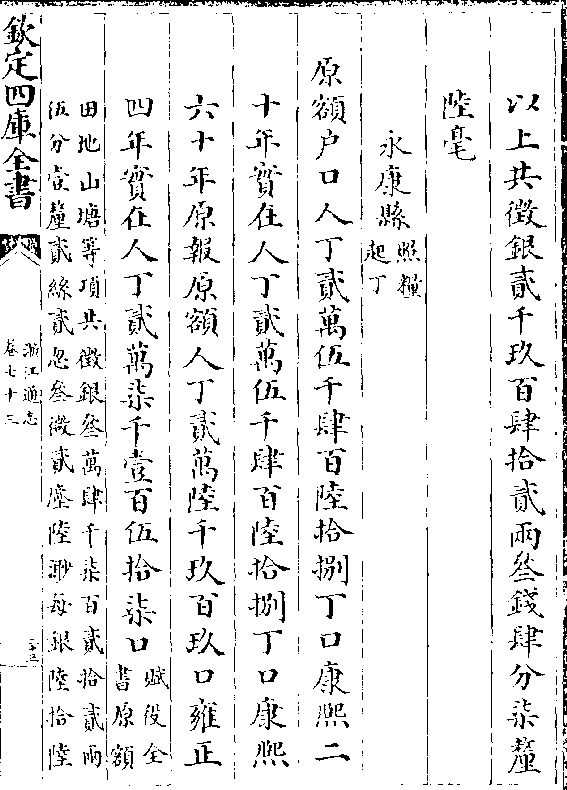 以上共徵銀貳千玖百肆拾貳兩叁錢肆分柒釐
陸毫
永康縣照糧
起丁
原額户口人丁貳萬伍千肆百陸拾捌丁口康熙二
十年實在人丁貳萬伍千肆百陸拾捌丁口康熙
六十年原報原額人丁貳萬陸千玖百玖口雍正
四年實在人丁貳萬柒千壹百伍拾柒口賦役全
書原額
田地山塘等項共徵銀叁萬肆千柒百貳拾貳兩
伍分壹釐貳絲貳忽叁微貳塵陸渺每銀陸拾陸
欽定四庫全書
浙江通志
卷七十三